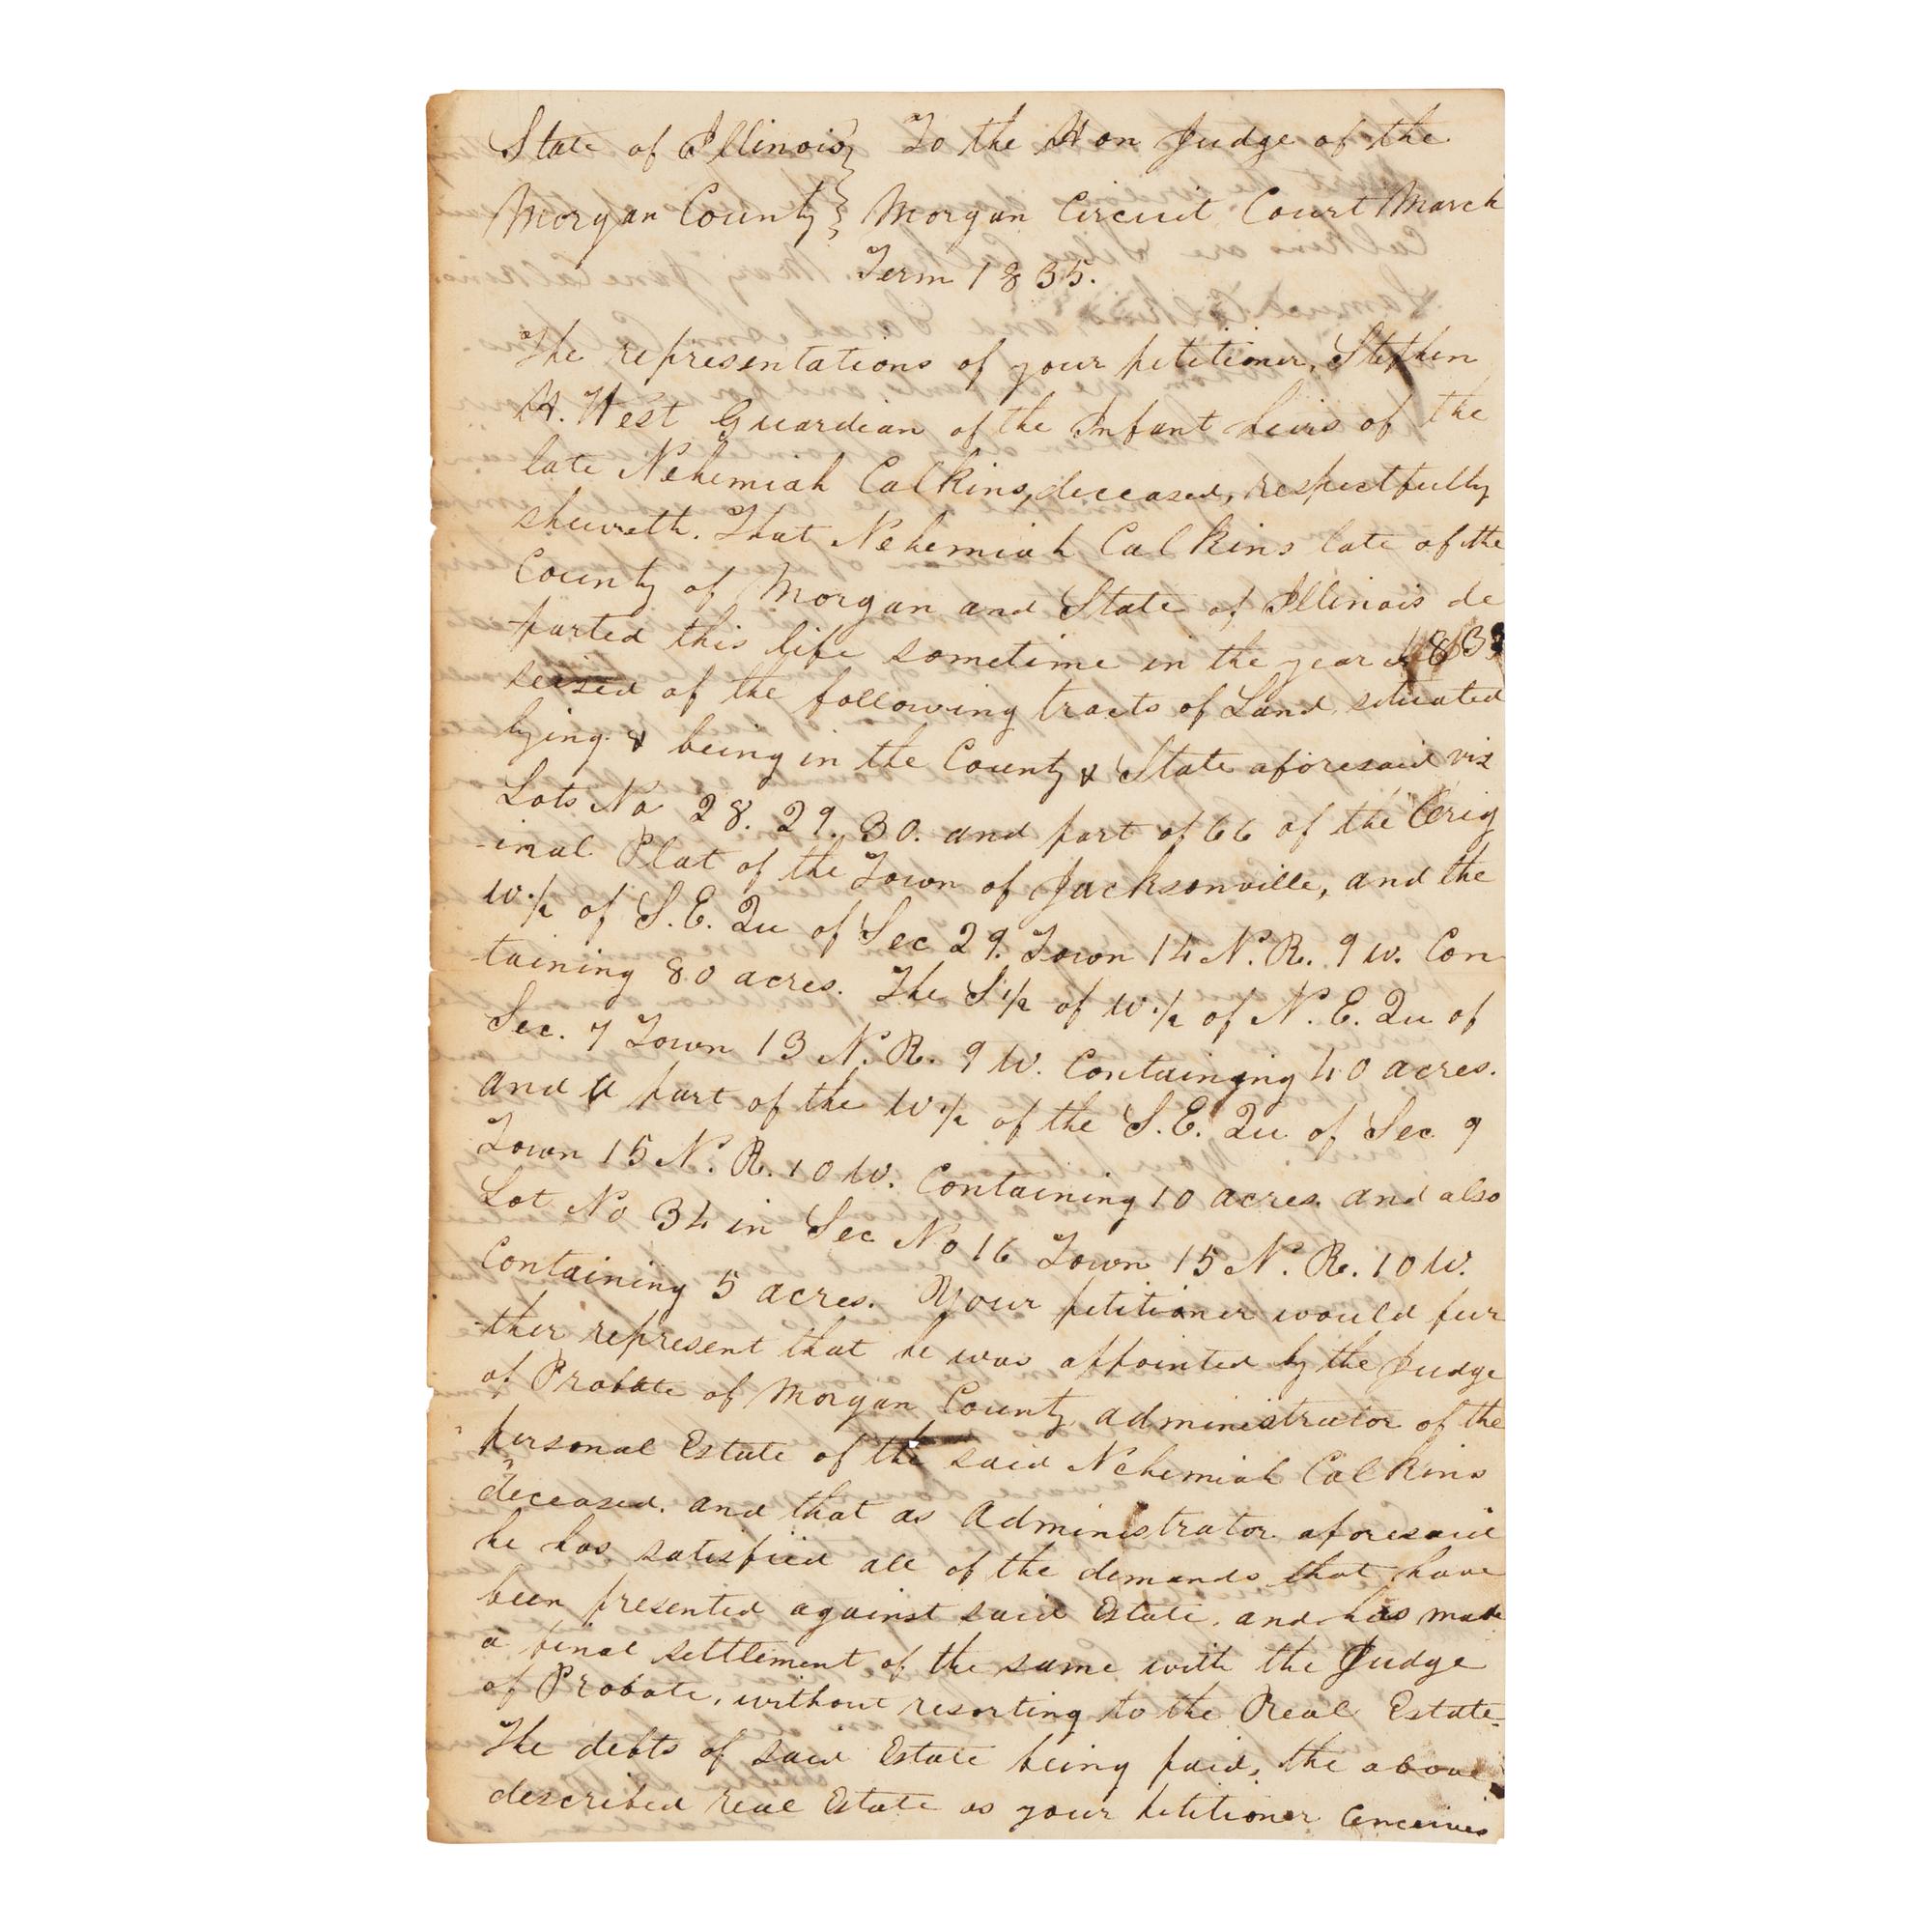 State of Illinois } To the Hon Judge of the
Morgan County } Morgan Circuit Court March
Term 1835.
The representations of your petitioner, Stephen
H. West Guardian of the Infant heirs of the
late Nehemiah Calkins, deceased, respectfully
sheweth. That Nehemiah Calkins late of the
County of Morgan and State of Illinois de
parted this life sometime in the year 1833
seized of the following tracts of Land situated
lying & being in the County & State aforesaid viz
Lots No 28. 29. 30. and part of 66 of the Orig
-inal Plat of the Town of Jacksonville, and the
W. 1/2 of S. E. Qu of Sec 29. Town 14 N. R. 9 W. Con
-taining 80 acres. The S 1/2 of W. 1/2 of N. E. Qu of
Sec. 7 Town 13 N. R. 9 W. Containing 40 acres.
and a part of the W 1/2 of the S. E. Qu of Sec 9
Town 15 N. R. 10 W. Containing 10 acres. and also
Lot No 34 in Sec No 16 Town 15 N. R. 10 W.
Containing 5 acres. Your petitioner would fur
-ther represent that he was appointed by the Judge
of Probate of Morgan County administrator of the
personal Estate of the said Nehemiah Calkins
deceased. and that as Administrator aforesaid
he has satisfied all of the demands that have
been presented against said Estate. and has made
a final settlement of the same with the Judge
of Probate, without resorting to the Real Estate.
The debts of said Estate being paid, the above
described real Estate as your petitioner Conceives